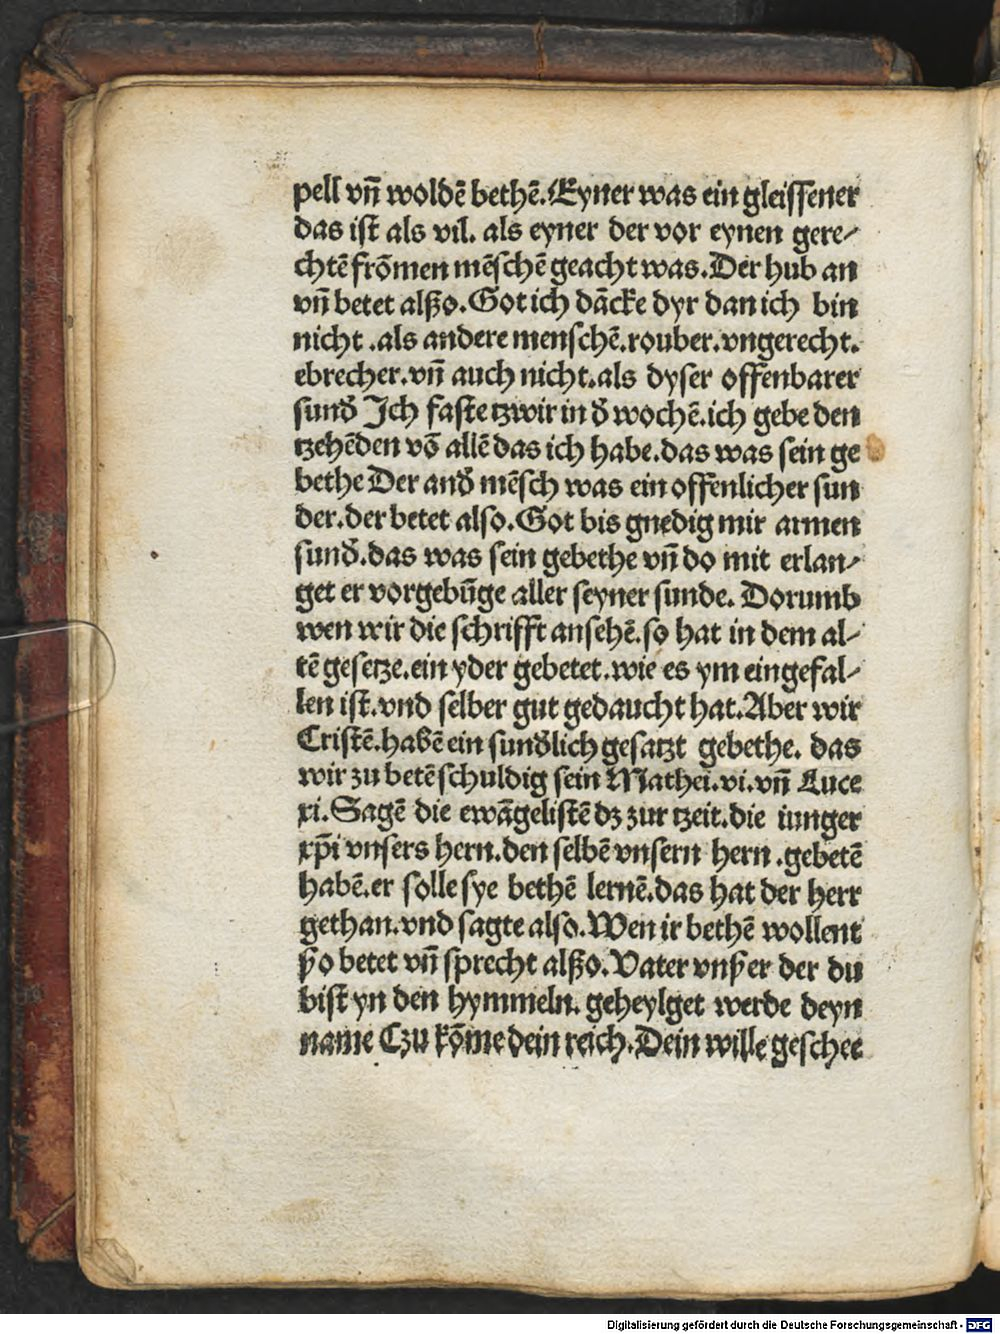 pell vn̄ woldē bethē. Eyner was ein gleissener
das ist als vil. als eyner der vor eynen gere⸗
chtē frōmen mēschē geacht was. Der hub an
vn̄ betet alßo. Got ich dācke dyr dan ich bin
nicht .als andere menschē. rouber. vngerecht.
ebrecher. vn̄ auch nicht. als dyser offenbarer
sund̛ Ich faste tzwir in d̛ wochē. ich gebe den
tzehēden vō allē das ich habe. das was sein ge
bethe Der and̛ mēsch was ein offenlicher sun
der. der betet also. Got bis gnedig mir armen
sund̛. das was sein gebethe vn̄ do mit erlan⸗
get er vorgebūge aller seyner sunde. Dorumb
wen wir die schrifft ansehē. so hat in dem al⸗
tē gesetze. ein yder gebetet. wie es ym eingefal⸗
len ist. vnd selber gut gedaucht hat. Aber wir
Cristē. habē ein sund̛lich gesatzt gebethe. das
wir zu betē schuldig sein Mathei. vi. vn̄ Luce
xi. Sagē die ewāgelistē dz zur tzeit. die iunger
xp̄i vnsers hern. den selbē vnsern hern .gebetē
habē. er solle sye bethē lernē. das hat der herr
gethan. vnd sagte also. Wen ir bethē wollent
ßo betet vn̄ sprecht alßo. Vater vnßer der du
bist yn den hymmeln. geheylget werde deyn
name Czu kōme dein reich. Dein wille geschee
Digitalisierung gefördert durch die Deutsche Forschungsgemeinschaft - DFG